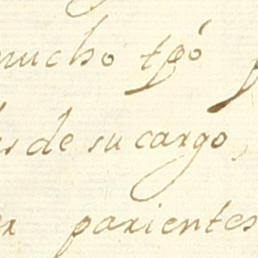 mucho tpó
es de su cargo,
parientes